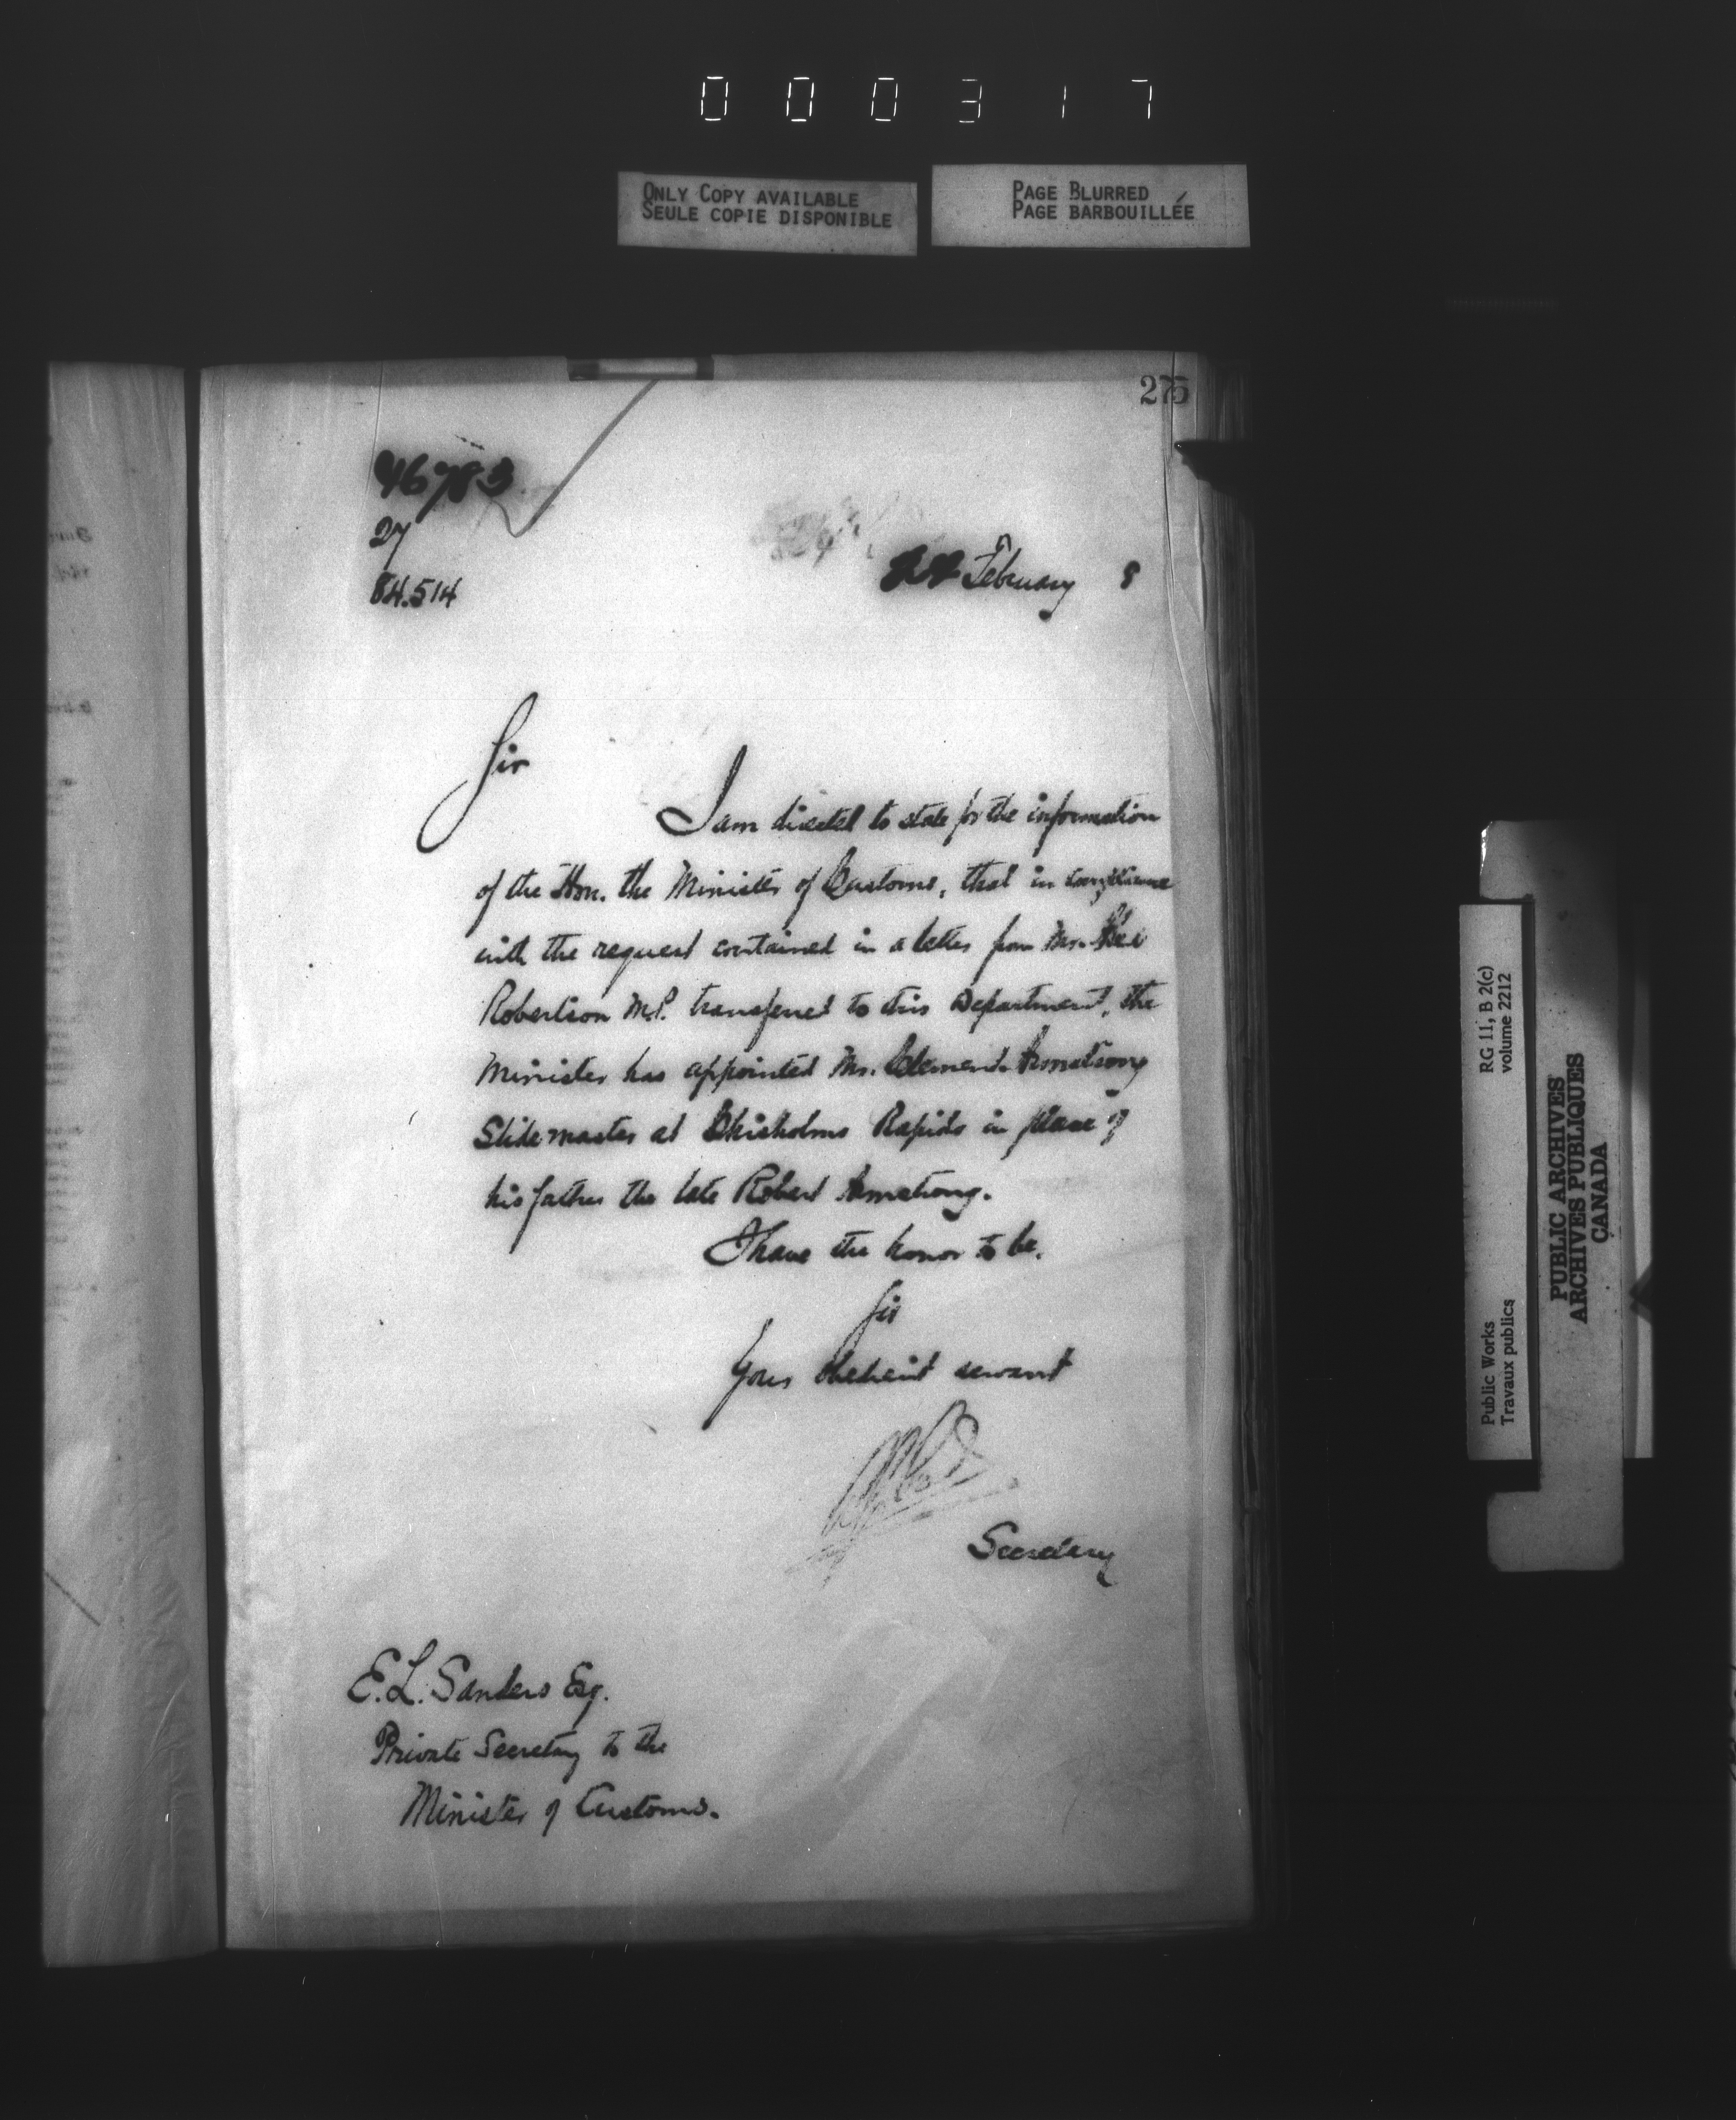 000317
ONLY COPY AVAILABLE
SEULE COPIE DISPONIBLE
PAGE BLURRED
PAGE BARBOUILLÉE
275
46783
27
84.514
22 February 8
Sir
I am directed to state for the information
of the Hon. the Minister of Customs, that in compliance
with the request contained in a letter from Mr.
Robertson M.P. transferred to this Department, the
Minister has appointed Mr. Clement Armstrong
Slide master at Chisholms Rapids in place of
his father the late Robert Armstrong.
I have the honor to be,
Sir
Your obedient servant
Secretary
E. L. Sanders Esq.
Private Secretary to the
Minister of Customs.
RG 11, B 2(c)
volume 2212
Public Works
Travaux publics
PUBLIC ARCHIVES
ARCHIVES PUBLIQUES
CANADA